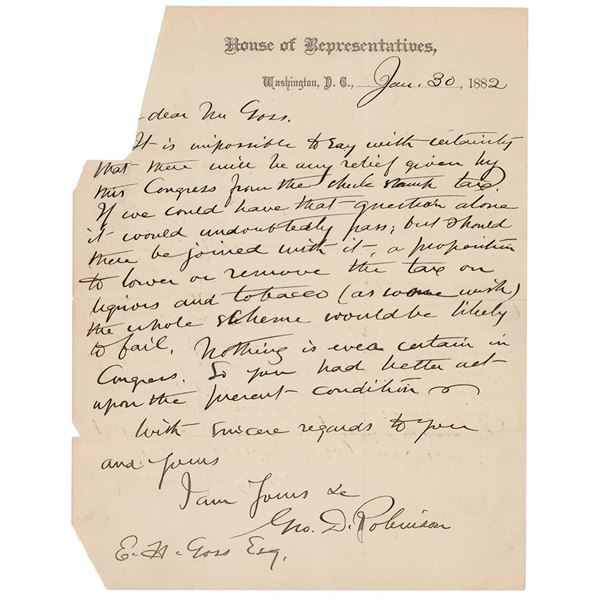 House of Representatives,
Washington, D. C., Jan. 30, 1882
dear Mr Goss.
It is impossible to say with certainty
that there will be any relief given by
this Congress from the check stamp tax.
If we could have that question alone
it would undoubtedly pass; but should
there be joined with it, a proposition
to lower or remove the tax on
liquors and tobacco (as some wish)
the whole scheme would be likely
to fail. Nothing is ever certain in
Congress. So you had better act
upon the present condition
With sincere regards to you
and yours
I am Yours &c
Geo. D. Robinson
E. H. Goss Esq.